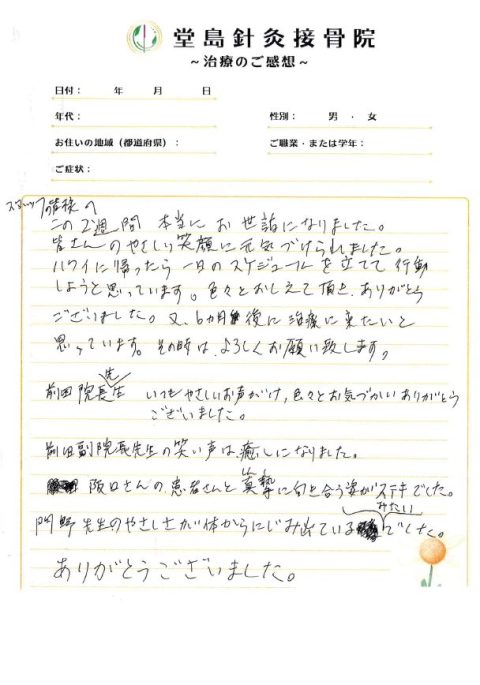 堂島針灸接骨院
～治療のご感想～
日付： 年 月 日
年代： 性別： 男 ・ 女
お住いの地域（都道府県）： ご職業・または学年：
ご症状：
スタッフの皆様へ
この2週間 本当にお世話になりました。
皆さんのやさしい笑顔に元気づけられました。
ハワイに帰ったら一日のスケジュールを立てて行動
しようと思っています。色々とおしえて頂き、ありがとう
ございました。又、6カ月後に治療に来たいと
思っています。その時は、よろしくお願い致します。
前田院長先生 いつもやさしいお声がけ、色々とお気づかいありがとう
ございました。
前田副院長先生の笑い声は、癒しになりました。
阪口さんの患者さんと真摯に向き合う姿がステキでした。
門野先生のやさしさが体からにじみ出ているみたいでした。
ありがとうございました。